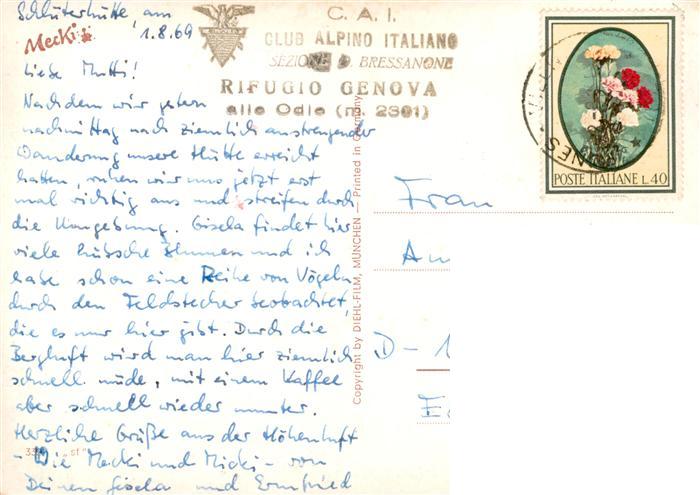 Schlüterhütte, am
1.8.69
Mecki
Liebe Mutti!
Nachdem wir gestern
nachmittag nach ziemlich anstrengender
Wanderung unsere Hütte erreicht
hatten, ruhen wir uns jetzt erst
mal richtig aus und streifen durch
die Umgebung. Gisela findet hier
viele hübsche Blumen und ich
habe schon eine Reihe von Vögeln
durch den Feldstecher beobachtet,
die es nur hier gibt. Durch die
Bergluft wird man hier ziemlich
schnell müde, mit einem Kaffee
aber schnell wieder munter.
Herzliche Grüße aus der Höhenluft
- Die Mecki und Micki - von
Deinen Gisela und Ermfried
C. A. I.
CLUB ALPINO ITALIANO
SEZIONE D. BRESSANONE
RIFUGIO GENOVA
alle Odle (m. 2301)
Copyright by DIEHL-FILM, MÜNCHEN — Printed in Germany
POSTE ITALIANE L.40
Frau
D-1